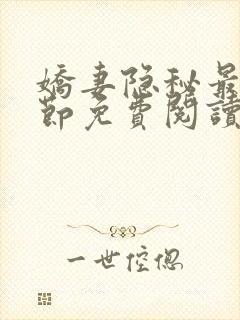 嬌妻隐秘最
節免費閱讀
一世倥偬